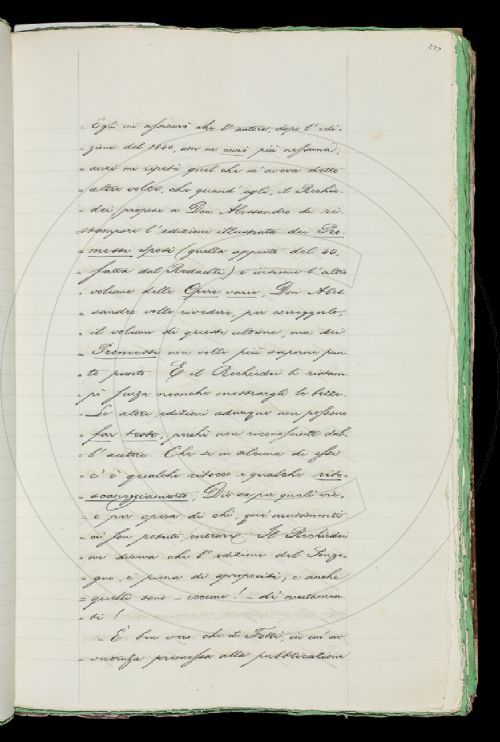 277
- Egli mi assicurò che l'autore, dopo l'edi-
- zione del 1840, non ne curò più nessuna;
- anzi mi ripetè quel che m'aveva detto
- altre volte, che quand'egli, il Rechie-
- dei propose a Don Alessandro di ri-
stampare l'edizione illustrata dei Pro-
- messi Sposi (quella appunto del 40,
- fatta dal Redaelli) e insieme l'altro
- volume delle Opere varie, Don Ales-
- sandro volle rivedere, per correggerlo,
- il volume di queste ultime, ma dei
- Promessi non volle più saperne pun-
- to punto. E il Rechiedei li ristam-
- pò senza neanche mostrargli le bozze.
- Le altre edizioni adunque non possono
- far testo, perchè non riconosciute dal-
- l'autore. Che se in alcuna di esse
- c'è qualche ritocco e qualche rito-
- Dio sa per quali vie,
- e per opera di chi, que'
- ci son potuti entrare. Il Rechiedei
- me diceva che l'edizione del
- è piena di spropositi; e anche
- queste sono - ! - di
- ti!
- È ben vero che il in un'av-
- vertenza premessa alla pubblicazione